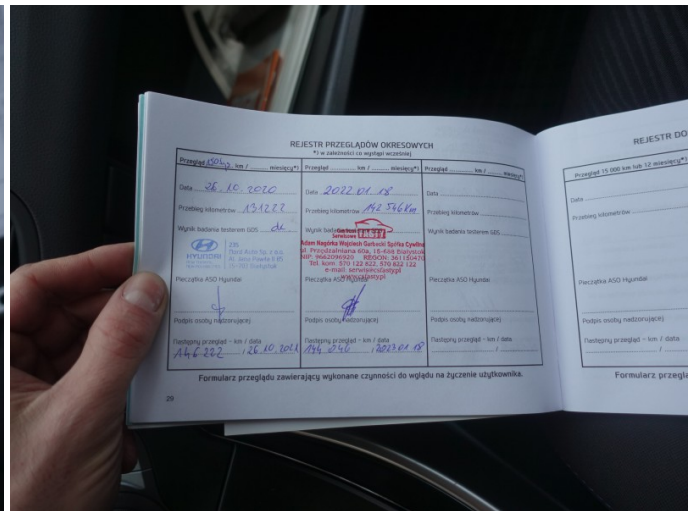 REJESTR PRZEGLĄDÓW OKRESOWYCH
*) w zależności co wystąpi wcześniej
Przegląd 150 tyś. km / ........ miesięcy*)
Data 26.10.2020
Przebieg kilometrów 131222
Wynik badania testerem GDS
HYUNDAI
Pieczątka ASO Hyundai
Podpis osoby nadzorującej
Następny przegląd - km / data
146 222 / 26.10.2021
Przegląd ........ km / ........ miesięcy*)
Data 2022.01.18
Przebieg kilometrów 142 546 km
Wynik badania
Serwisowe FASTY
Adam Nagórka Wojciech Garbacki Spółka Cywilna
ul. Przędzalniana 60a, 15-688 Białystok
NIP: 9662096920 REGON: 361150470
Tel. kom. 570 122 622, 570 822 122
Pieczątka ASO Hyundai
Podpis osoby nadzorującej
Następny przegląd - km / data
/ 2023.01.18
Przegląd ........ km / ........ miesięcy*)
Data
Przebieg kilometrów
Wynik badania testerem GDS
Pieczątka ASO Hyundai
Podpis osoby nadzorującej
Następny przegląd - km / data
/
Formularz przeglądu zawierający wykonane czynności do wglądu na życzenie użytkownika.
29
REJESTR DO
Przegląd 15 000 km lub 12 miesięcy*)
Data
Przebieg kilometrów
Pieczątka ASO Hyundai
Podpis osoby nadzorującej
Następny przegląd - km / data
/
Formularz przeglą